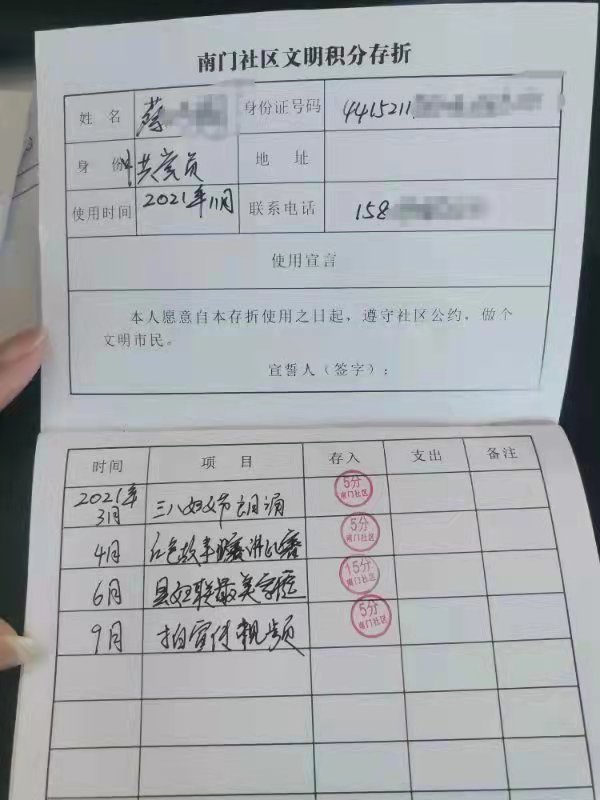 南门社区文明积分存折
姓名 蔡 身份证号码 4415211
身份 中共党员 地址
使用时间 2021年11月 联系电话 158
使用宣言
本人愿意自本存折使用之日起，遵守社区公约，做个
文明市民。
宣誓人（签字）：
时间 项目 存入 支出 备注
2021年
3月 三八妇女节朗诵 5分 南门社区
4月 红色故事 讲比赛 5分 南门社区
6月 县妇联最美家庭 15分 南门社区
9月 拍宣传视频 5分 南门社区